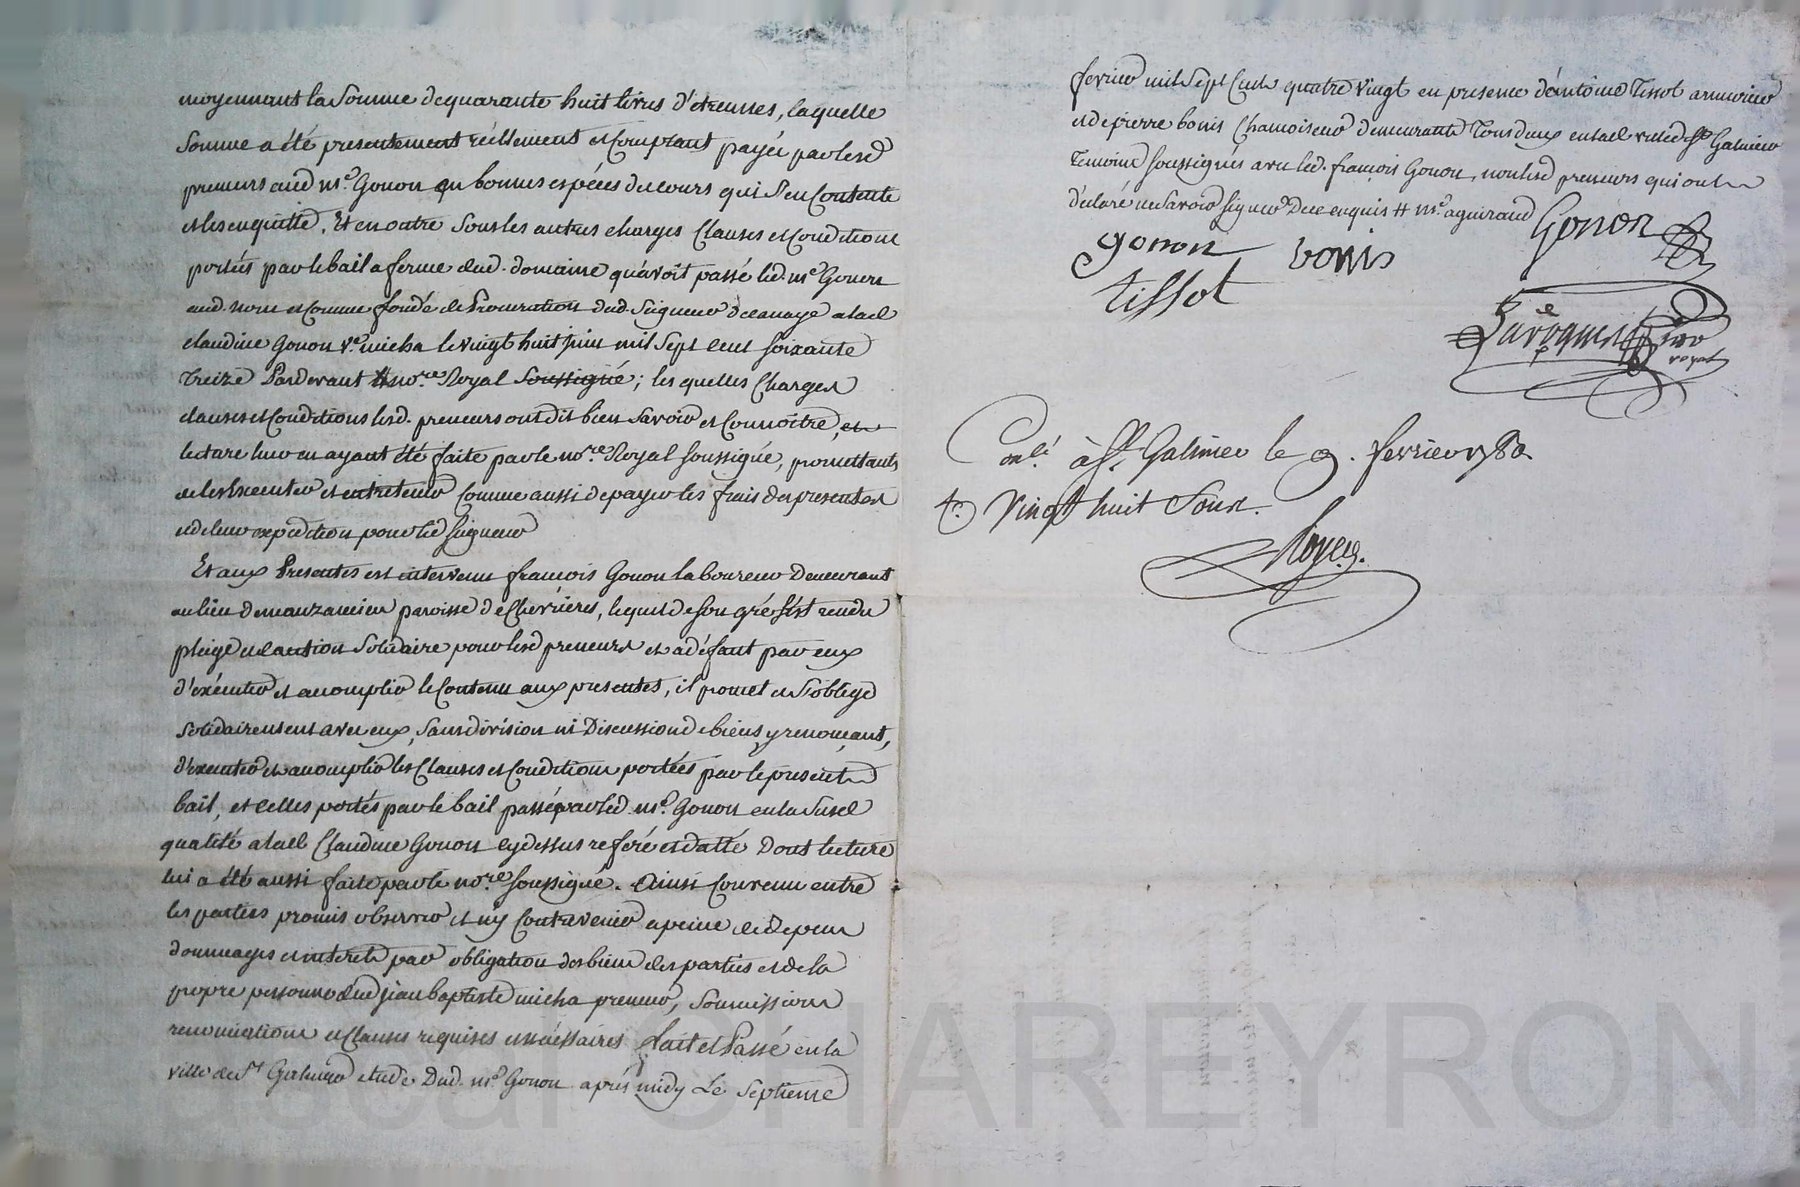 moyennant la Somme de quarante huit livres d'étrennes, laquelle
Somme a été presentement réellement et Comptant payée par lesd
preneurs aud. me. Gonon en bonnes espéces du cours qui s'en Contente
et les enquitte. Et en outre Sous les autres charges Clauses et Conditions
portées par le bail a ferme dud. domaine qu'avoit passé led. me Gonon
aud. nom et Comme fondé de Procuration dud. Seigneur a lad
claudine Gonon ve. micha le vingt huit juin mil Sept cent soixante
treize Pardevant nore Royal Soussigné; les quelles Charges
clauses et Conditions lesd. preneurs ont dit bien Savoir et Connoître, et
lecture leur en ayant été faite par le nore. Royal soussigné, promettants
de les Executer et entretenir Comme aussi de payer les frais des presentes
et de leur expédition pour led seigneur
Et aux Presentes est intervenu françois Gonon laboureur Demeurant
au lieu de paroisse de Chevrières, lequel de son gré s'est rendu
pleige et Caution Solidaire pour lesd preneurs et a défaut par eux
d'exécuter et accomplir le Contenu aux presentes, il promet et s'oblige
Solidairement avec eux, Sans division ni Discussion de biens y renonçant,
d'executer et accomplir les Clauses et Conditions portées par le présent
bail, et celles portés par le bail passé par led. me. Gonon en la Susd
qualité a lad Claudine Gonon cy dessus referé et datté Dont lecture
lui a été aussi faite par le nore soussigné. Ainsi Convenu entre
les parties promis observer et n'y Contrevenir a peine de depens
dommages et interets par obligation des biens des parties et de la
propre personne dud jean baptiste micha preneur, Soumissions
renonciations et Clauses requises et nécessaires fait et Passé en la
ville de St Galmier etude Dud. me Gonon après midy Le Septieme
fevrier mil Sept Cent quatre vingt en presence d'antoine Tissot armurier
et de pierre bonis Chamoiseur demeurants Tous deux en lad ville de St Galmier
Temoins soussignés avec led. françois Gonon, non lesd preneurs qui ont
déclaré ne Savoir signer De ce enquis # me. aguiraud
Gonon
gonon bonis
tissot
Larogue
royal
Conlé à St. Galmier le 9. fevrier 1780
Vingt huit Sous.
Royer.
Pascal CHAREYRON